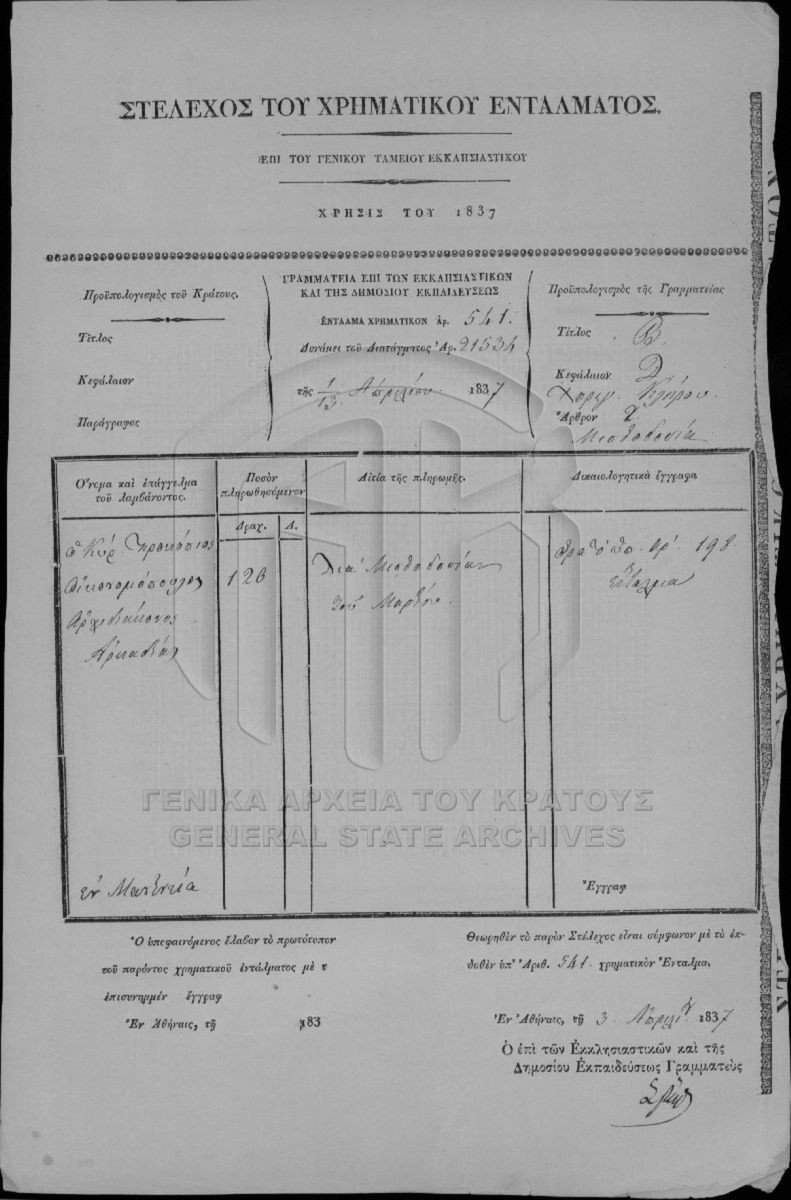 ΣΤΕΛΕΧΟΣ ΤΟΥ ΧΡΗΜΑΤΙΚΟΥ ΕΝΤΑΛΜΑΤΟΣ.
ΕΠΙ ΤΟΥ ΓΕΝΙΚΟΥ ΤΑΜΕΙΟΥ ΕΚΚΛΗΣΙΑΣΤΙΚΟΥ
ΧΡΗΣΙΣ ΤΟΥ 1837
Προϋπολογισμὸς τοῦ Κράτους.
Τίτλος
Κεφάλαιον
Παράγραφος
ΓΡΑΜΜΑΤΕΙΑ ΕΠΙ ΤΩΝ ΕΚΚΛΗΣΙΑΣΤΙΚΩΝ
ΚΑΙ ΤΗΣ ΔΗΜΟΣΙΟΥ ΕΚΠΑΙΔΕΥΣΕΩΣ
ΕΝΤΑΛΜΑ ΧΡΗΜΑΤΙΚΟΝ Ἀρ. 541.
Δυνάμει τοῦ Διατάγματος Ἀρ. 21534
τῆς 1/13 Ἀπριλίου 1837
Προϋπολογισμὸς τῆς Γραμματείας
Τίτλος Β.
Κεφάλαιον Δ
Κλήρου
Ἄρθρον 2.
Μισθοδοσία
Ὄνομα καὶ ἐπάγγελμα
τοῦ λαμβάνοντος.
Ποσὸν
πληρωθησόμενον
Δραχ. Λ.
Αἰτία τῆς πληρωμῆς.
Δικαιολογητικὰ ἔγγραφα
ὁ Κύρ. Προκόπιος
Οἰκονομόπουλος
Ἀρχιδιάκονος
Ἀρκαδίας
120
Διὰ Μισθοδοσίαν
τοῦ Μαρτίου.
ἀρ. 198
ἔνταλμα
ἐν Μαντινεία
Ἔγγραφ
Ὁ ὑπεφαινόμενος ἔλαβον τὸ πρωτότυπον
τοῦ παρόντος χρηματικοῦ ἐντάλματος μὲ τ
ἐπισυνημμέν ἔγγραφ
Ἐν Ἀθήναις, τῇ 183
Θεωρηθὲν τὸ παρὸν Στέλεχος εἶναι σύμφωνον μὲ τὸ ἐκ-
δοθὲν ὑπ' Ἀριθ. 541. χρηματικὸν Ἔνταλμα.
Ἐν Ἀθήναις, τῇ 3 Ἀπριλίου 1837
Ὁ ἐπὶ τῶν Ἐκκλησιαστικῶν καὶ τῆς
Δημοσίου Ἐκπαιδεύσεως Γραμματεὺς
ΓΕΝΙΚΑ ΑΡΧΕΙΑ ΤΟΥ ΚΡΑΤΟΥΣ
GENERAL STATE ARCHIVES